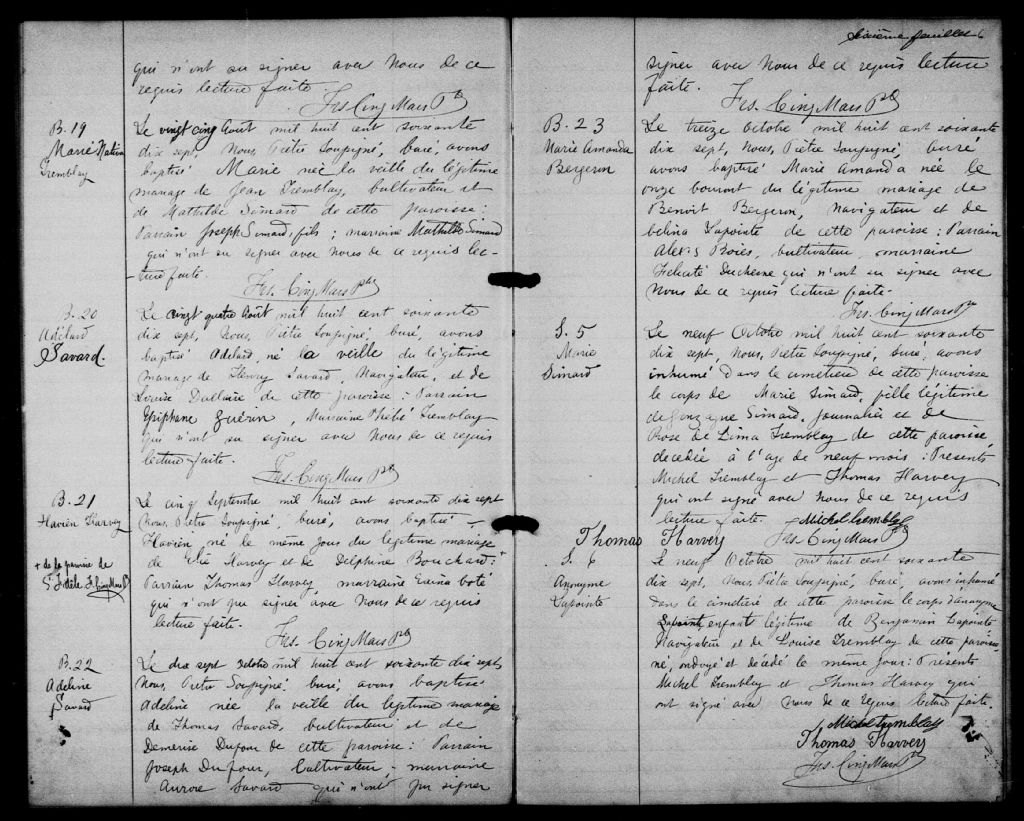 qui n'ont su signer avec Nous de ce
requis lecture faite.
Frs. Cinq Mars Ptr
B. 19
Marie
Tremblay
Le vingt cinq Août mil huit cent soixante
dix sept, Nous, Prêtre Soussigné, Curé, avons
baptisé Marie née la veille du légitime
mariage de Jean Tremblay, Cultivateur et
de Mathilde Simard de cette paroisse:
Parrain Joseph Simard, fils; marraine Mathilde Simard
qui n'ont su signer avec Nous de ce requis lec-
ture faite.
Frs. Cinq Mars Ptre
B. 20
Adélard
Savard.
Le vingt quatre Août mil huit cent soixante
dix sept, Nous, Prêtre Soussigné, Curé, avons
baptisé Adelard, né la veille du légitime
mariage de Henry Savard, Navigateur, et de
Louise Dallaire de cette paroisse: Parrain
Epiphane Guérin, Marraine Phébé Tremblay
qui n'ont su signer avec Nous de ce requis
lecture faite.
Frs. Cinq Mars Ptr
B. 21
Flavien Harvey
+ de la paroisse de
St Fidèle. F. Cinq Mars Ptr
Le cinq Septembre mil huit cent soixante dix sept
Nous, Prêtre Soussigné, Curé, avons baptisé
Flavien, né le même jour du légitime mariage
de Harvey et de Delphine Bouchard: +
Parrain Thomas Harvey, marraine
qui n'ont pu signer avec Nous de ce requis
lecture faite.
Frs. Cinq Mars Ptr
B. 22
Adeline
Savard
Le dix sept Octobre mil huit cent soixante dix sept
Nous, Prêtre Soussigné, Curé, avons baptisé
Adeline née la veille du légitime mariage
de Thomas Savard, Cultivateur et de
Demerise Dufour de cette paroisse: Parrain
Joseph Dufour, Cultivateur, marraine
Aurore Savard qui n'ont pu signer
Sixième feuillet 6
signer avec Nous de ce requis lecture
faite.
Frs. Cinq Mars Ptr
B. 23
Marie Amanda
Bergeron
Le treize Octobre mil huit cent soixante
dix sept, Nous, Prêtre Soussigné, Curé
avons baptisé Marie Amanda née le
onze courant du légitime mariage de
Benoit Bergeron, Navigateur et de
Célina Lapointe de cette paroisse: Parrain
Alexis Boies, Cultivateur, marraine
Félicité Duchesne qui n'ont su signer avec
Nous de ce requis lecture faite.
Frs. Cinq Mars Ptr
S. 5
Marie
Simard
Le neuf Octobre mil huit cent soixante
dix sept, Nous, Prêtre Soussigné, Curé, avons
inhumé dans le cimetière de cette paroisse
le corps de Marie Simard, fille légitime
de Gonzague Simard, Journalier et de
Rose de Lima Tremblay de cette paroisse,
décédée à l'age de neuf mois: Présents
Michel Tremblay et Thomas Harvey
qui ont signé avec Nous de ce requis
lecture faite. Michel tremblay
Thomas Harvery Frs. Cinq Mars Ptr
S. 6
Anonyme
Lapointe
Le neuf Octobre mil huit cent soixante
dix sept, Nous, Prêtre Soussigné, Curé, avons inhumé
dans le cimetière de cette paroisse le corps d'anonyme
Lapointe, enfant légitime de Benjamin Lapointe
Navigateur et de Louise Tremblay de cette paroisse,
né, ondoyé et décédé le même jour: Présents
Michel Tremblay et Thomas Harvey qui
ont signé avec Nous de ce requis lecture faite.
Michel tremblay
Thomas Harvery
Frs. Cinq Mars Ptr